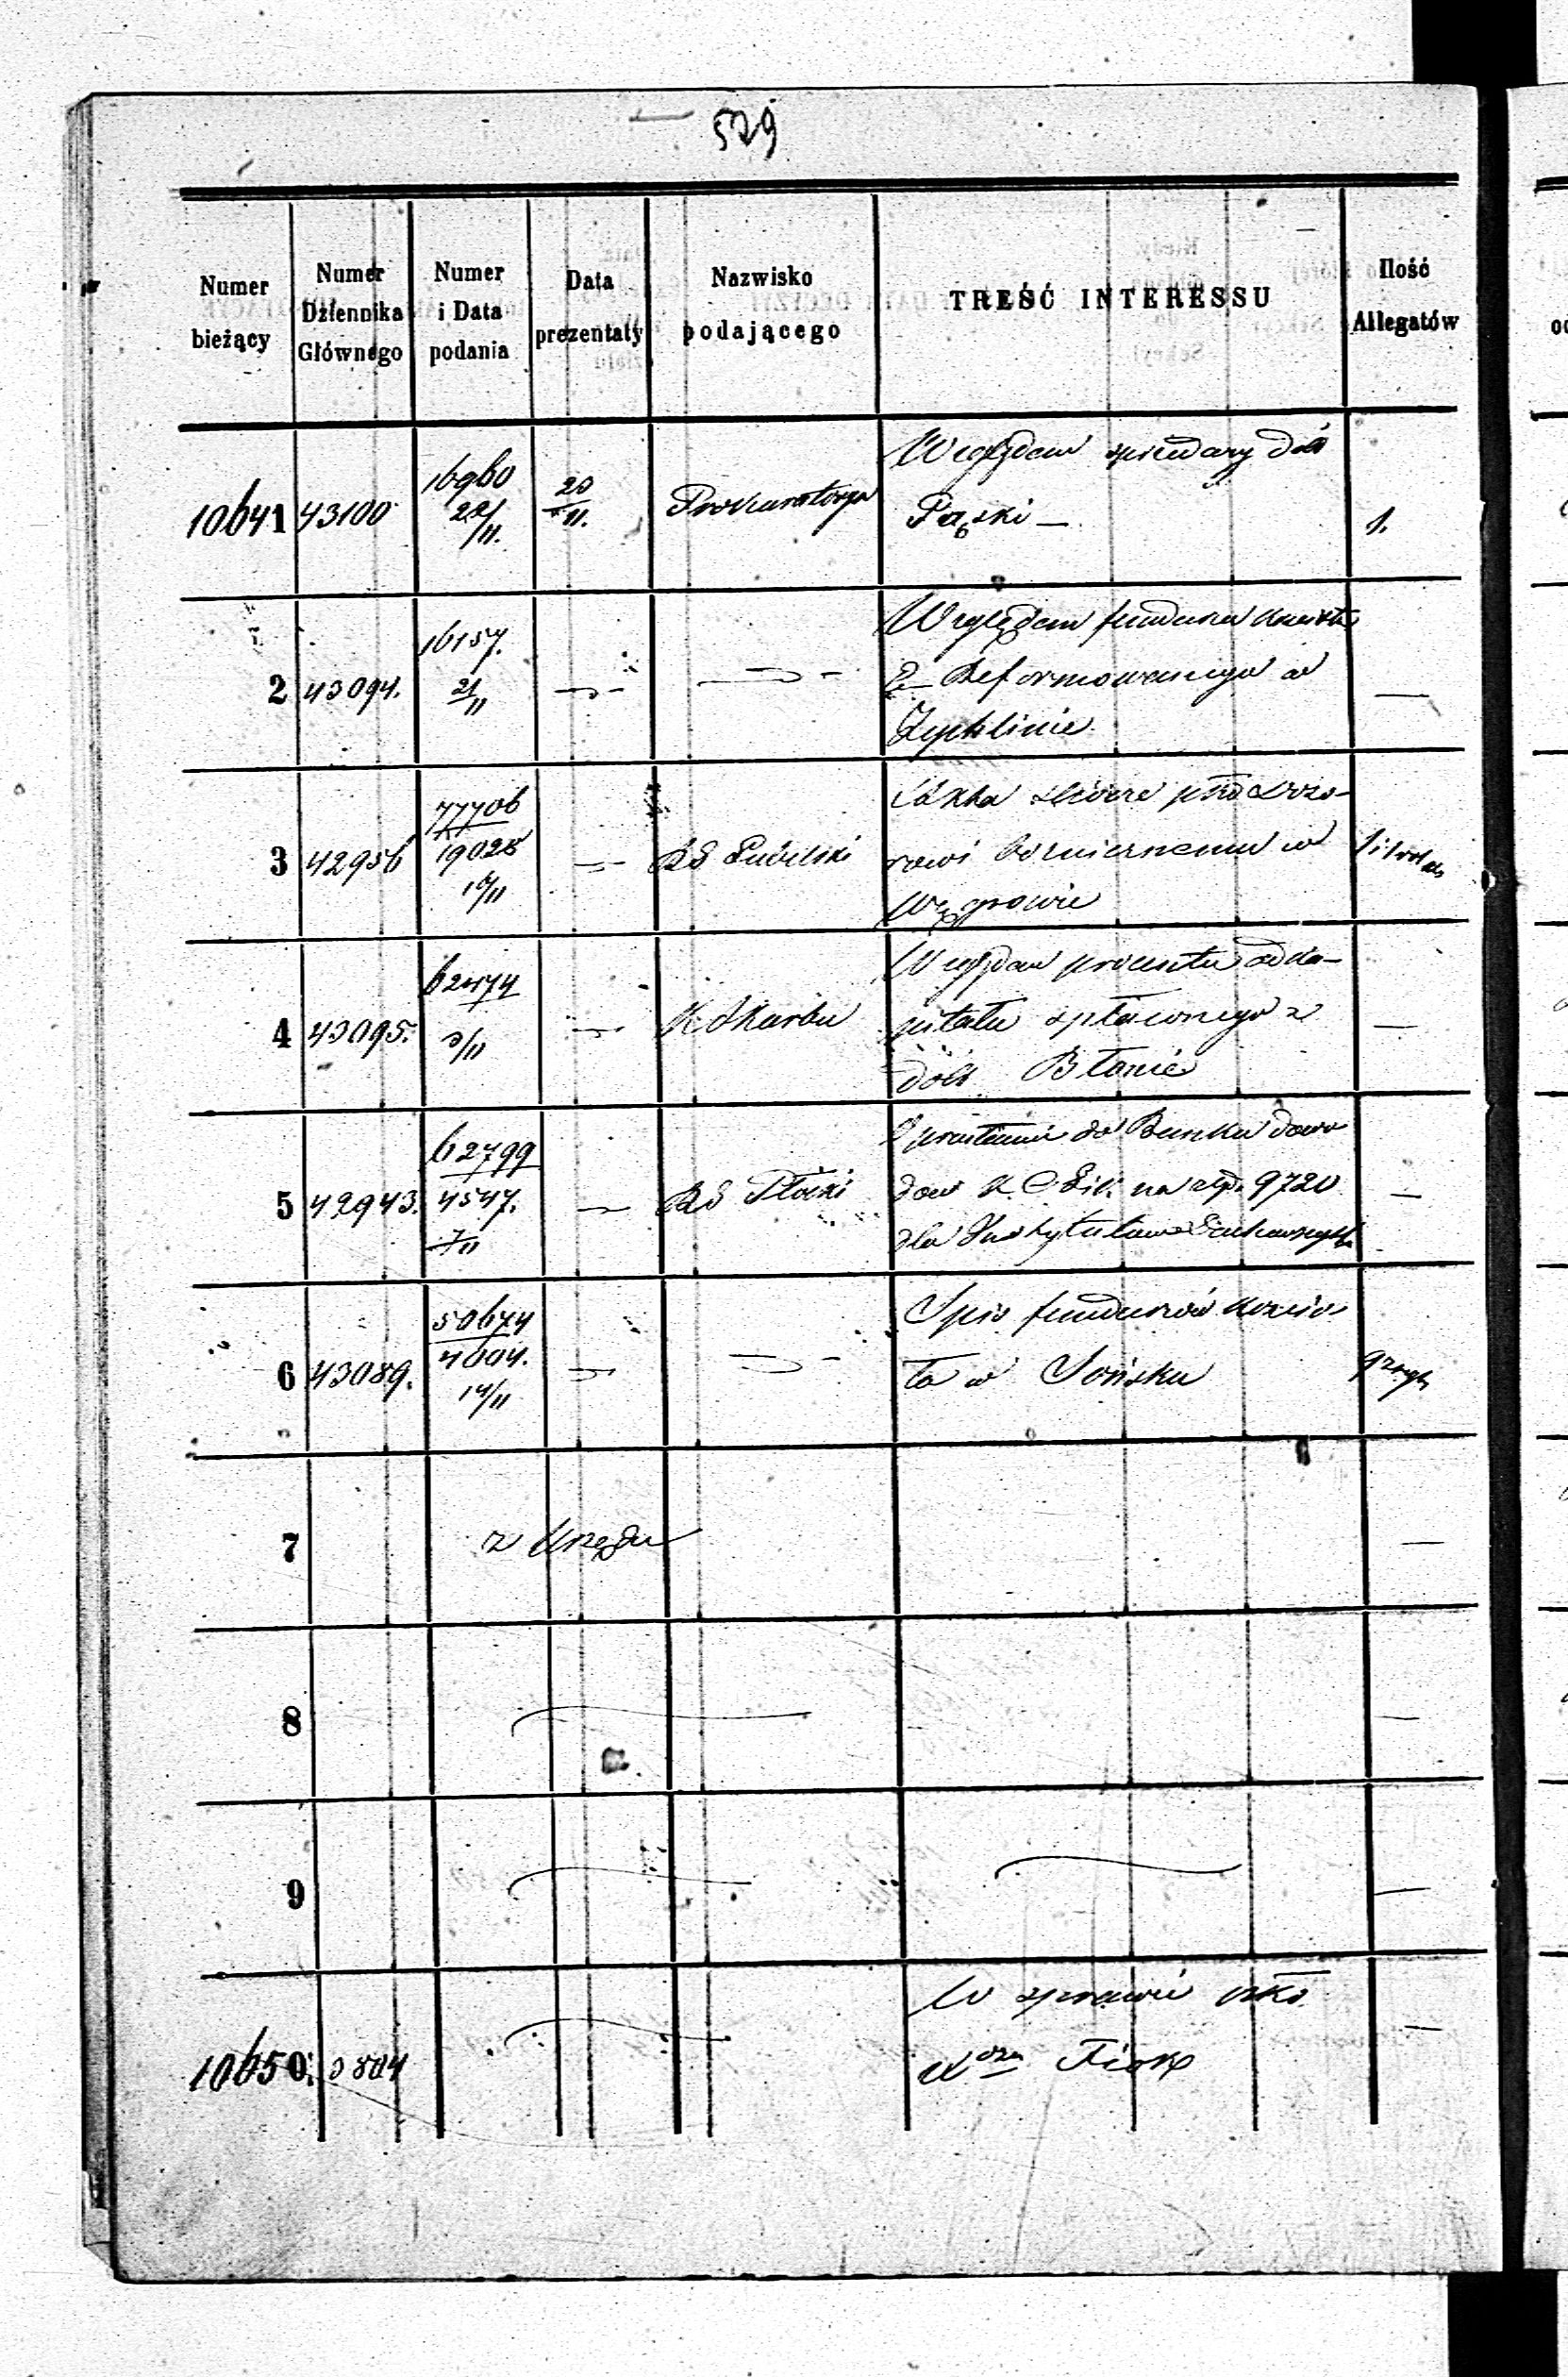 529
Numer bieżący
Numer Dziennika Głównego
Numer i Data podania
Data prezentaty
Nazwisko podającego
TREŚĆ INTERESSU
Ilość Allegatów
10641 43100 16960 22/11. 23/11. Prokuratorya
Względem sprzedaży dóbr
Pąski —
1.
2 43094. 16157. 21/11
Względem funduszu
Reformowanego w
Żychlinie
—
3 42956 77706 19028 16/11 RG Lubelski
rowi w
Węgrowie
4 43095. 62474 3/11 K. Skarbu
Względem procentu od ka-
pitału spławnego z
dóbr Błonie
—
5 42943. 62799 4547. 7/11 RG Płocki
do Banku dowo
dow na rsp. 9720
dla Instytutów
—
6 43089. 50674 4604. 14/11
Spis funduszów kościo
ła w Sońsku
7 z Urzędu —
8 —
9 —
10650. 3804
W sprawie
—